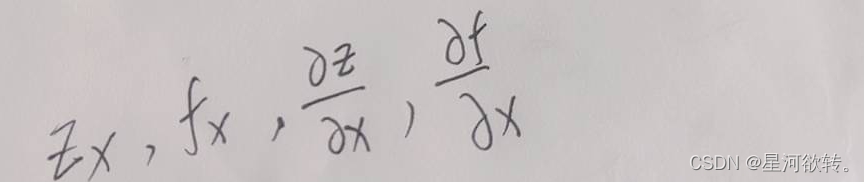 zx, fx, ∂z/∂x, ∂f/∂x
CSDN @星河欲转。